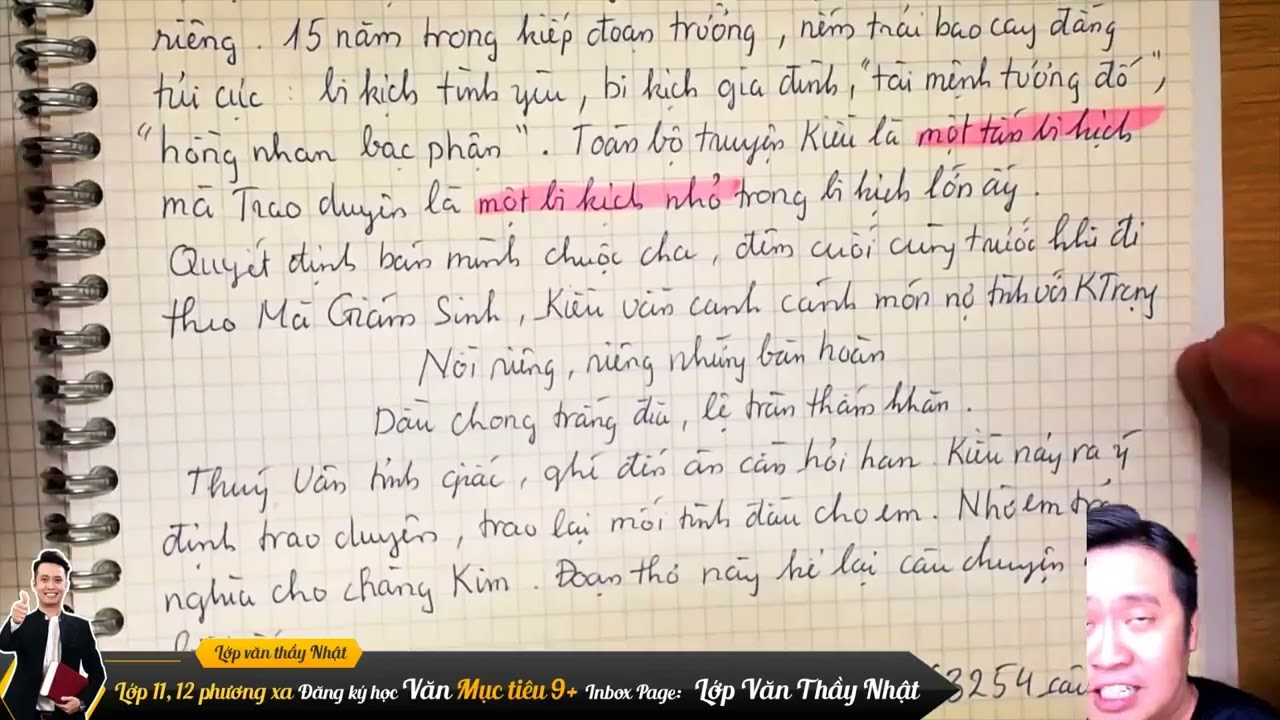 riêng. 15 năm trong kiếp đoạn trường, nếm trải bao cay đắng
tủi cực: bi kịch tình yêu, bi kịch gia đình, "tài mệnh tương đố",
"hồng nhan bạc phận". Toàn bộ truyện Kiều là một tấn bi kịch
mà Trao duyên là một bi kịch nhỏ trong bi kịch lớn ấy.
Quyết định bán mình chuộc cha, đêm cuối cùng trước khi đi
theo Mã Giám Sinh, Kiều vẫn canh cánh món nợ tình với K Trọng
Nỗi riêng, riêng những bàn hoàn
Dầu chong trắng đĩa, lệ tràn thấm khăn.
Thuý Vân tỉnh giấc, ghé đến ân cần hỏi han Kiều nảy ra ý
định trao duyên, trao lại mối tình đầu cho em. Nhờ em trả
nghĩa cho chàng Kim. Đoạn thơ này kể lại câu chuyện
3254 câu
Lớp văn thầy Nhật
Lớp 11, 12 phương xa Đăng ký học Văn Mục tiêu 9+ Inbox Page: Lớp Văn Thầy Nhật